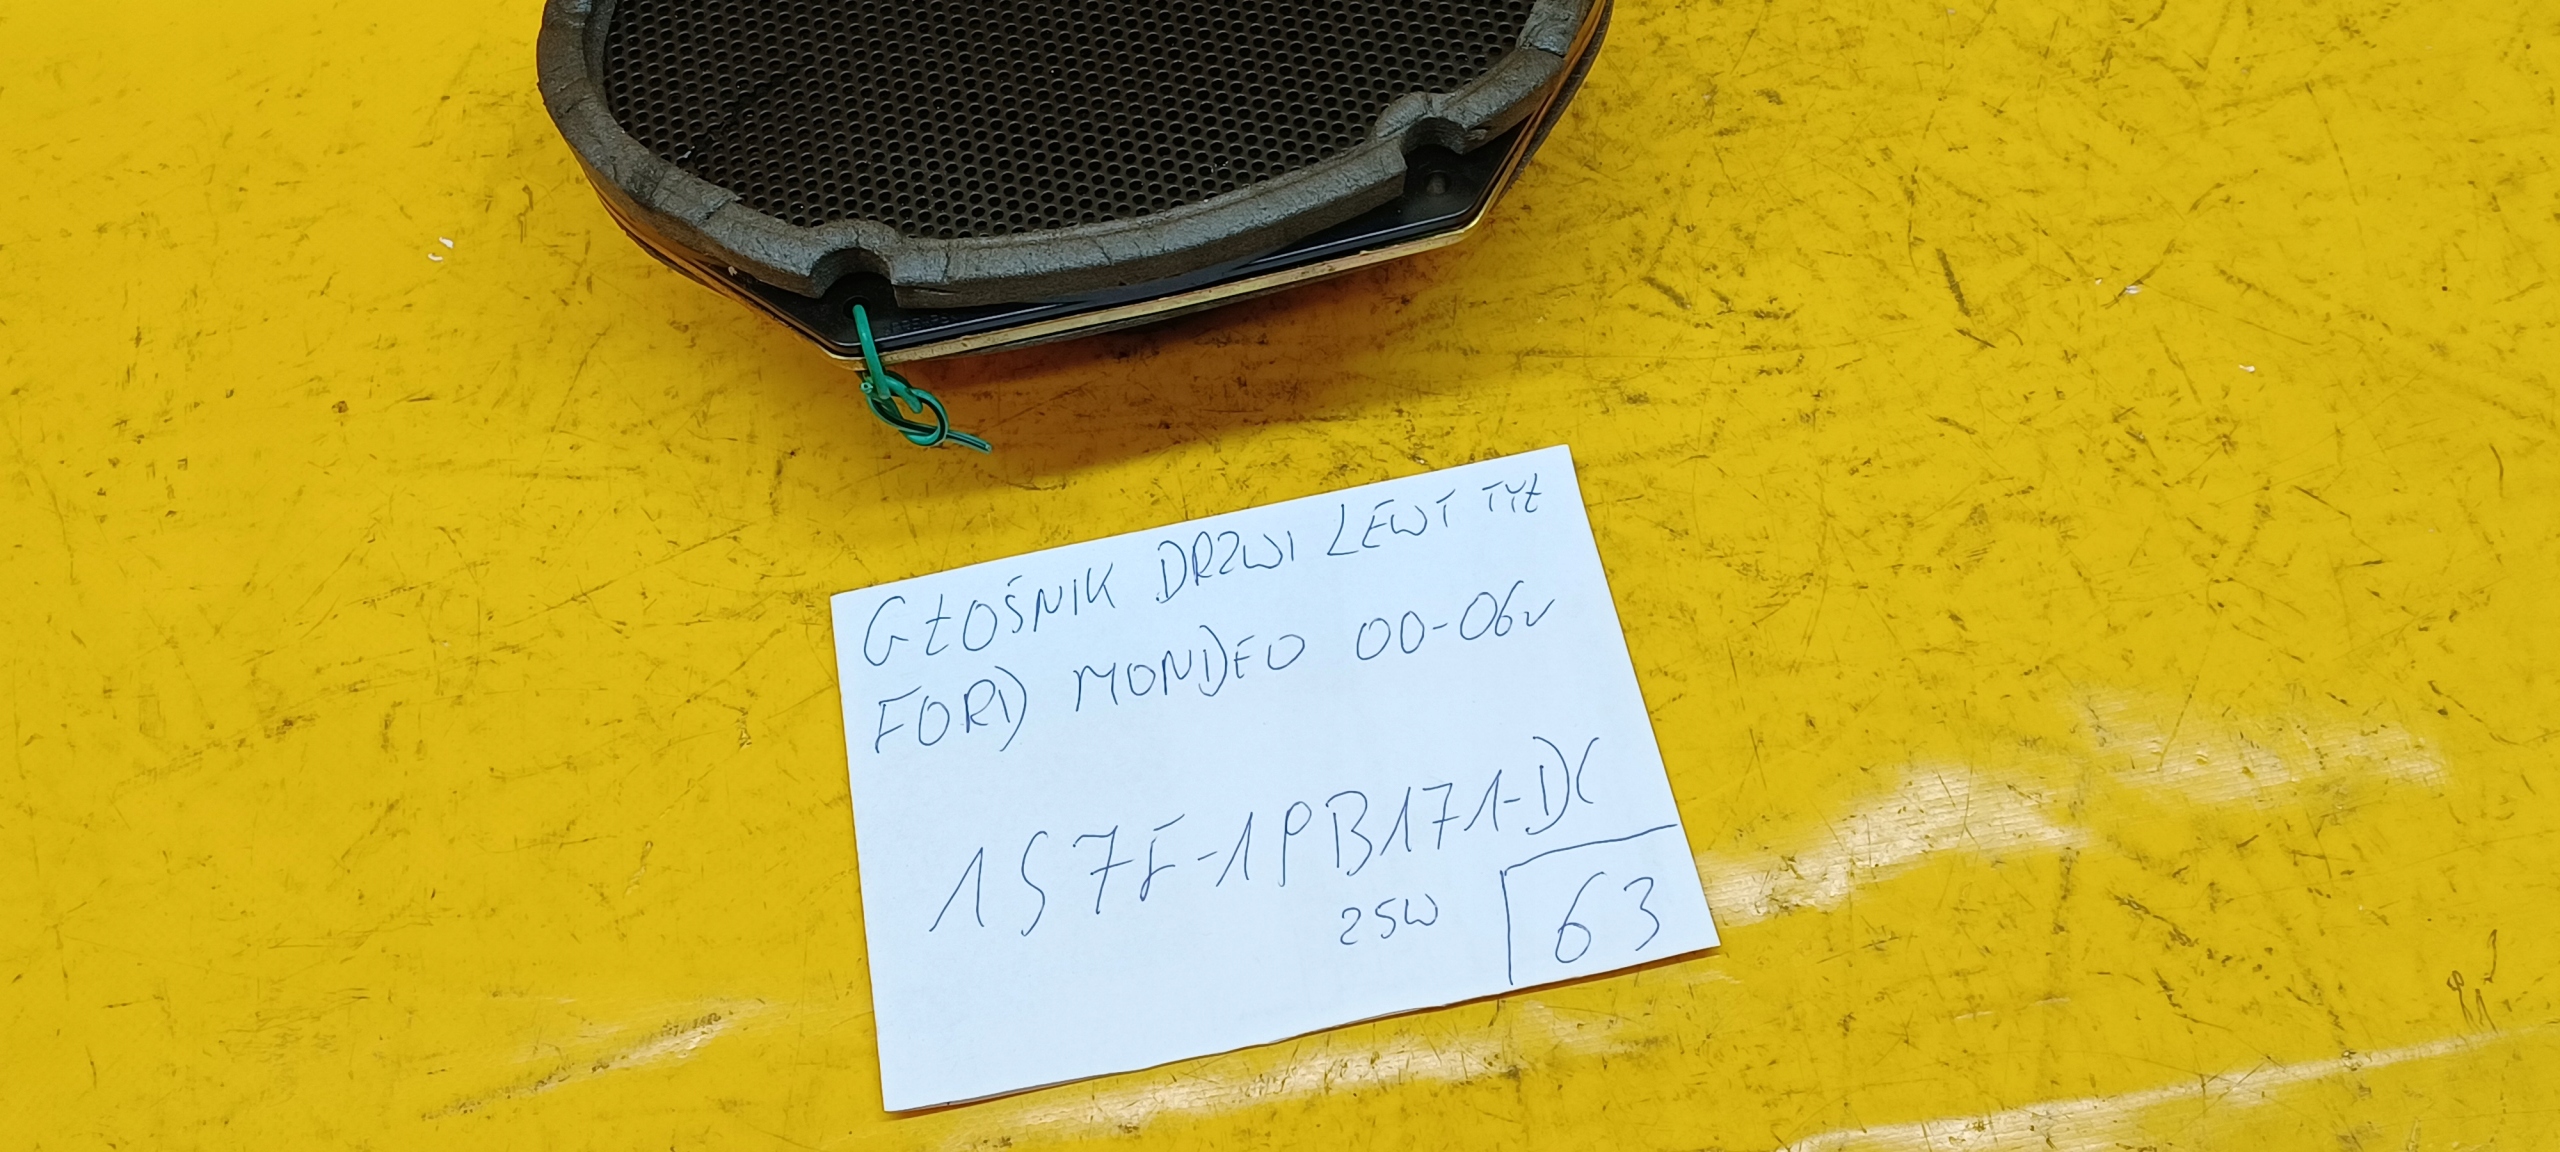 GŁOŚNIK DRZWI LEWY TYŁ
FORD MONDEO 00-06r
1S7F-18B171-DC
25W
63